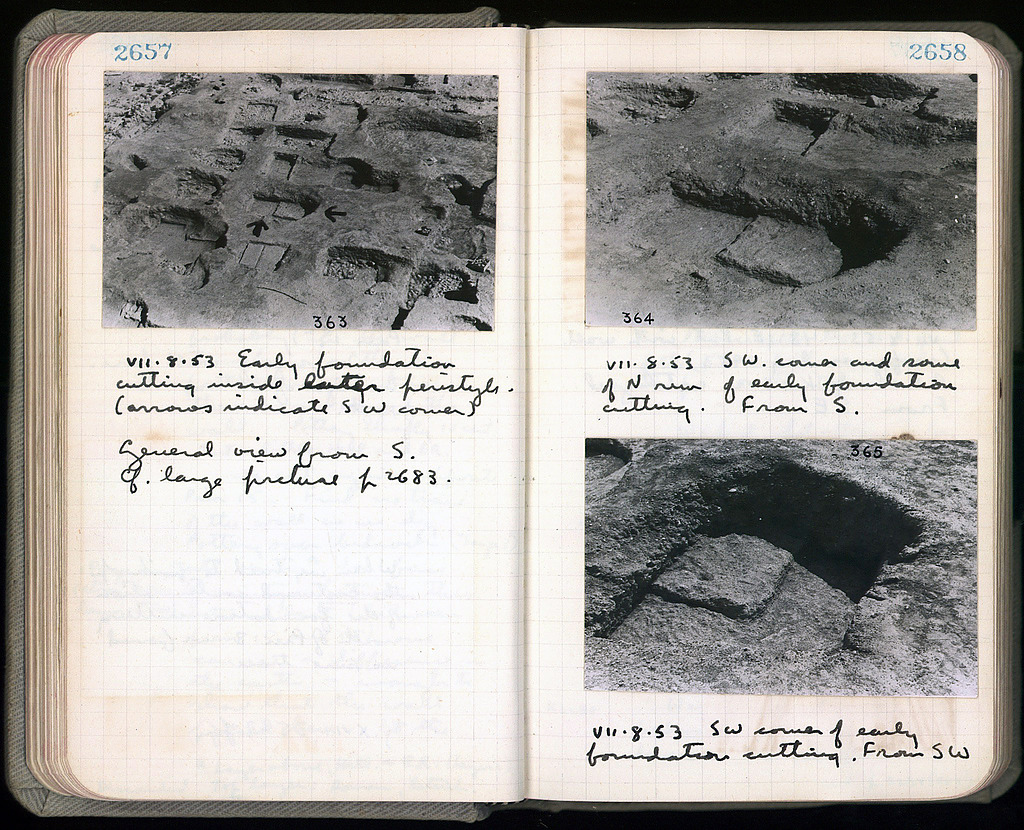 2657
363
VII.8.53 Early foundation
cutting inside later peristyle.
(arrows indicate SW corner)
General view from S.
Cf. large picture p 2683.
2658
364
VII.8.53 SW. corner and some
of N run of early foundation
cutting. From S.
365
VII.8.53 SW corner of early
foundation cutting. From SW